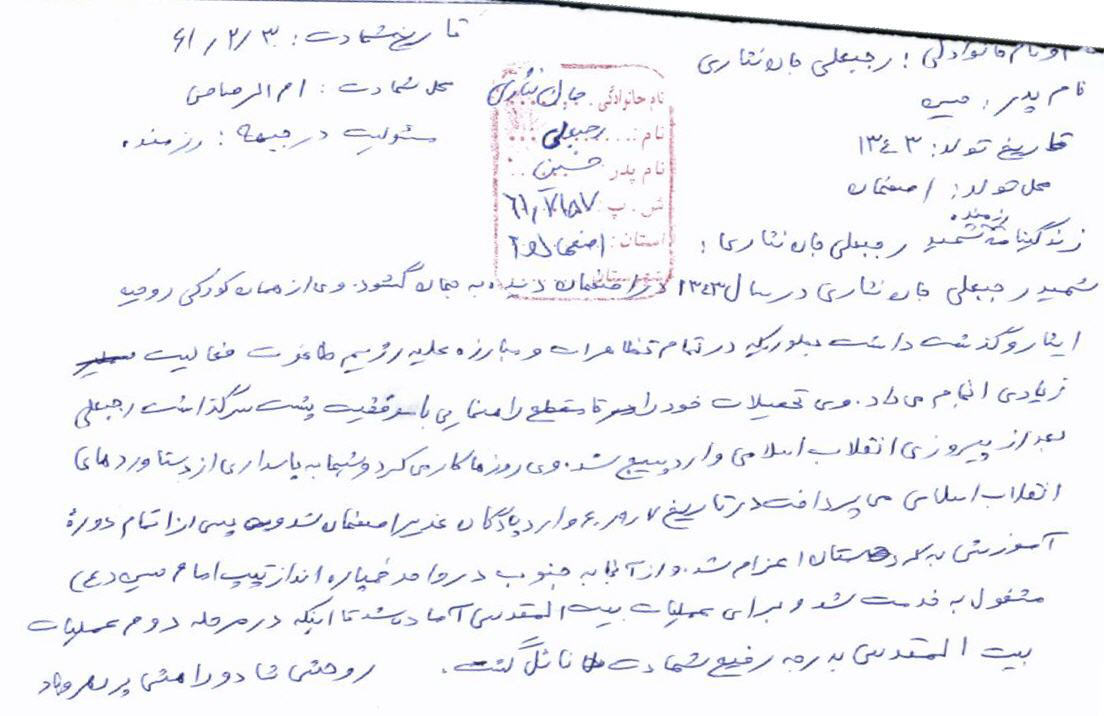 و نام خانوادگی: رجبعلی جان نثاری
نام پدر: حسین
تاریخ تولد: ۱۳۴۳
محل تولد: اصفهان
تاریخ شهادت: ۶۱/۲/۳۰
محل شهادت: ام الرصاص
مسئولیت در جبهه: رزمنده
نام خانوادگی: جان نثاری
نام: رجبعلی
نام پدر: حسین
ش. پ:
استان: اصفهان
شهرستان
رزمنده
زندگینامه شهید رجبعلی جان نثاری:
شهید رجبعلی جان نثاری در سال ۱۳۴۳ در اصفهان دیده به جهان گشود. وی از همان کودکی روحیه
ایثار و گذشت داشت بطوریکه در تمام تظاهرات و مبارزه علیه رژیم طاغوت فعالیت
زیادی انجام می داد. وی تحصیلات خود را تا مقطع راهنمایی با موفقیت پشت سر گذاشت رجبعلی
بعد از پیروزی انقلاب اسلامی وارد بسیج شد. وی روزها کار می کرد و شبها به پاسداری از دستاوردهای
انقلاب اسلامی می پرداخت در تاریخ ۶۰/۹/۷ وارد پادگان غدیر اصفهان شد و پس از اتمام دورهٔ
آموزشی به کردستان اعزام شد. و از آنجا به جنوب در واحد خمپاره انداز تیپ امام حسین (ع)
مشغول به خدمت شد و برای عملیات بیت المقدس آماده شد تا اینکه در مرحله دوم عملیات
بیت المقدس به درجه رفیع شهادت نائل گشت. روحش شاد و راهش پر رهرو باد